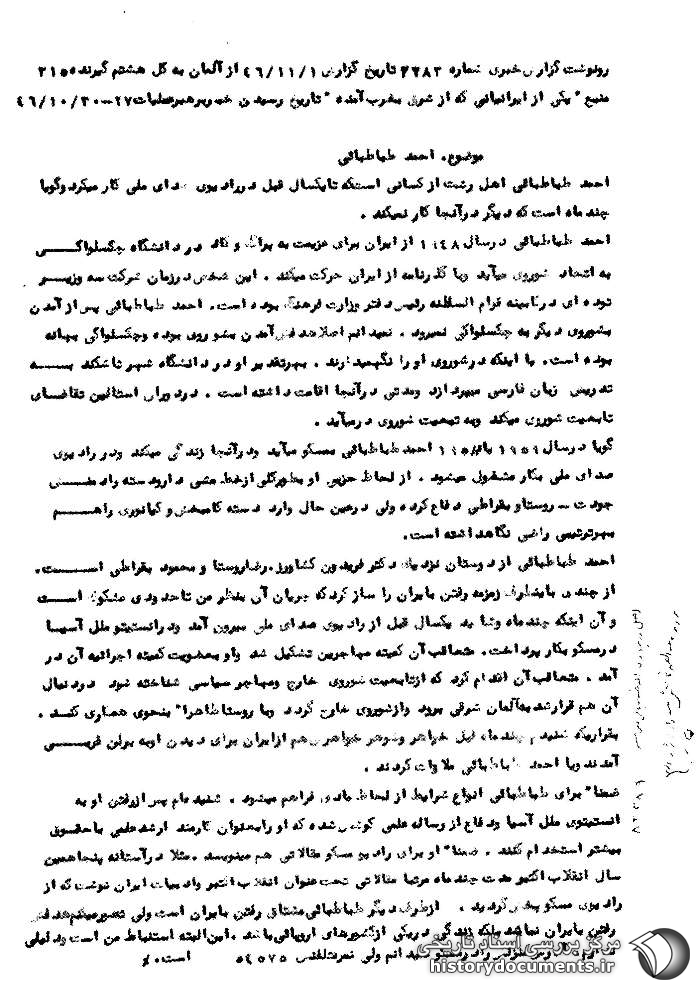 رونوشت گزارش خبری شماره ۲۲۸۳ تاریخ گزارش ۴۶/۱۱/۱ از آلمان به کل هشتم گیرنده ۳۱۵
منبع " یکی از ایرانیانی که از شرق بغرب آمده " تاریخ رسیدن خبر برهبر عملیات ۲۷-۴۶/۱۰/۳۰
موضوع. احمد طباطبائی
احمد طباطبائی اهل رشت از کسانی است که تا یکسال قبل در رادیوی صدای ملی کار میکرد و گویا
چند ماه است که دیگر در آنجا کار نمیکند .
احمد طباطبائی در سال ۱۹۴۸ از ایران برای عزیمت به پراگ و کار در دانشگاه چکسلواکی
به اتحاد شوروی میآید و با گذرنامه از ایران حرکت میکند . این شخص در زمان شرکت سه وزیر
توده ای در کابینه قوام السلطنه رئیس دفتر وزارت فرهنگ بوده است. احمد طباطبائی پس از آمدن
بشوروی دیگر به چکسلواکی نمیرود . نمیدانم اصلا هدفش آمدن بشوروی بوده و چکسلواکی بهانه
بوده است. یا اینکه در شوروی او را نگهمیدارند . بهرتقدیر او در دانشگاه شهر تاشکند به
تدریس زبان فارسی میپردازد و مدتی در آنجا اقامت داشته است . در دوران استالین تقاضای
تابعیت شوروی میکند و به تبعیت شوروی درمیآید .
گویا در سال ۱۹۵۹ یا احمد طباطبائی بمسکو میآید و در آنجا زندگی میکند و در رادیوی
صدای ملی بکار مشغول میشود . از لحاظ حزبی او بطور کلی از خط مشی دار و دسته رادمنش
جودت - روستا و بقراطی دفاع کرده ولی در عین حال وارد دسته کامبخش و کیانوری را هم
بهرترتیبی راضی نگاهداشته است.
احمد طباطبائی از دوستان نزدیک دکتر فریدون کشاورز . رضا روستا و محمود بقراطی است.
از چندی باینطرف زمزمه رفتن بایران را ساز کرد که جریان آن بنظر من تا حدودی مشکوک است
و آن اینکه چند ماه و شاید یکسال قبل از رادیوی صدای ملی بیرون آمد و در انستیتو ملل آسیا
در مسکو بکار پرداخت. متعاقب آن کمیته مهاجرین تشکیل شد و او بعضویت کمیته اجرائیه آن در
آمد . متعاقب آن اقدام کرد که از تابعیت شوروی خارج و مهاجر سیاسی شناخته شود و در دنبال
آن هم قرار شد به آلمان شرقی برود و از شوروی خارج گردد و با روستا ظاهرا" بنحوی همکاری کند .
بقراریکه شنیدم چند ماه قبل خواهر و شوهر خواهرش هم از ایران برای دیدن او به برلن غربی
آمدند و با احمد طباطبائی ملاقات کردند .
ضمنا" برای طباطبائی انواع شرایط از لحاظ مادی فراهم میشود . شنیده ام پس از رفتن او به
انستیتوی ملل آسیا و دفاع از رساله علمی کوشش شده که او را بعنوان کارمند ارشد علمی با حقوق
بیشتر استخدام کنند . ضمنا" او برای رادیو مسکو مقالاتی هم مینویسد . مثلا در آستانه پنجاهمین
سال انقلاب اکتبر مدت چند ماه مرتبا مقالاتی تحت عنوان انقلاب اکتبر و ادبیات ایران نوشت که از
رادیوی مسکو پخش گردید . از طرف دیگر طباطبائی مشتاق رفتن بایران است ولی تصور میکنم هدفش
رفتن بایران نباشد بلکه زندگی در یکی از کشورهای اروپائی باشد . این البته استنباط من است و دلیلی
ندارم . نمیدانم ولی نمره تلفنش ۵۴۵۷۵ است %
مرکز بررسی اسناد تاریخی
historydocuments.ir